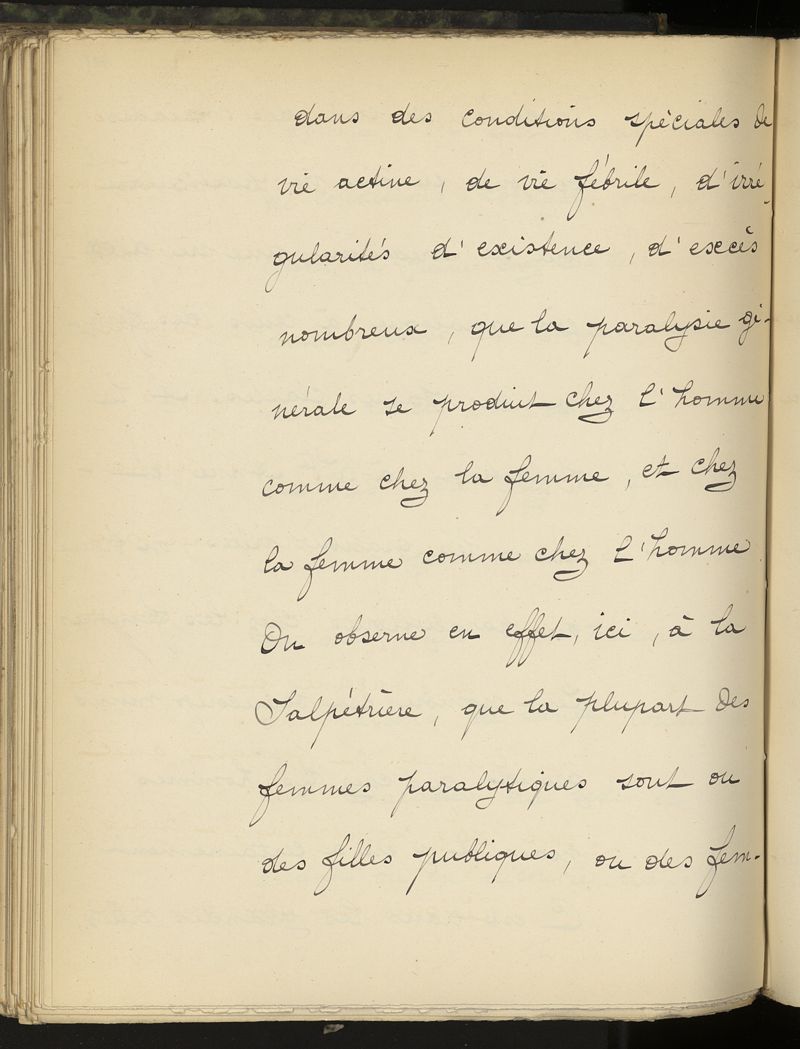 dans des conditions spéciales de
vie active, de vie fébrile, d'irré-
gularités d'existence, d'excès
nombreux, que la paralysie gé-
nérale se produit chez l'homme
comme chez la femme, et chez
la femme comme chez l'homme
On observe en effet, ici, à la
Salpétrière, que la plupart des
femmes paralytiques sont ou
des filles publiques, ou des fem-